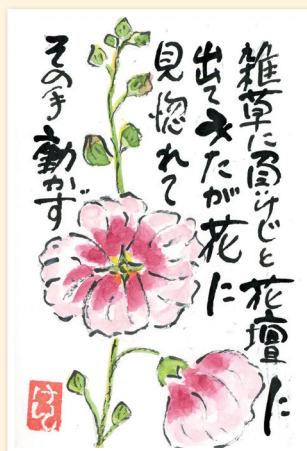 雑草に負けじと花壇に
出てみたが花に
見惚れて
その手動かず
けいこ